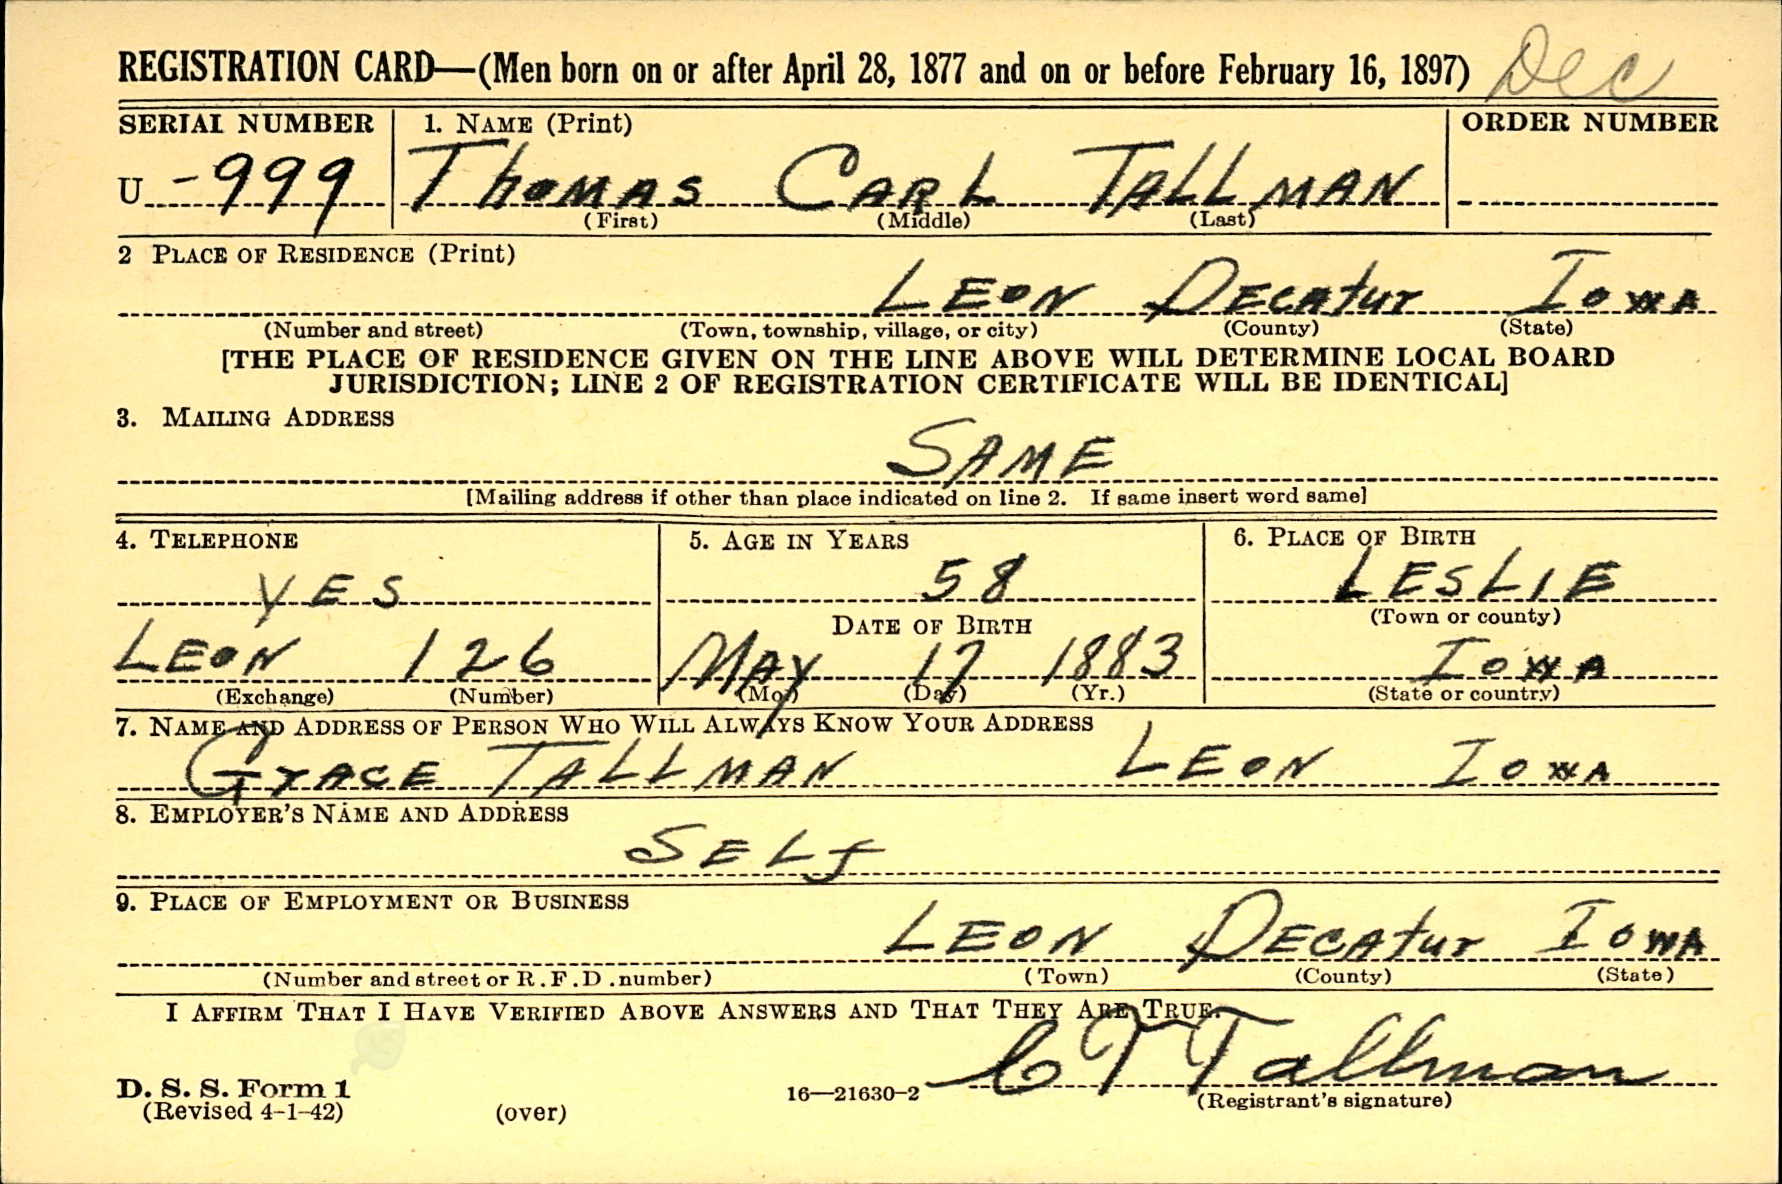 REGISTRATION CARD—(Men born on or after April 28, 1877 and on or before February 16, 1897) Dec
SERIAL NUMBER 1. NAME (Print) ORDER NUMBER
U -999 Thomas Carl Tallman
(First) (Middle) (Last)
2 PLACE OF RESIDENCE (Print)
Leon Decatur Iowa
(Number and street) (Town, township, village, or city) (County) (State)
[THE PLACE OF RESIDENCE GIVEN ON THE LINE ABOVE WILL DETERMINE LOCAL BOARD
JURISDICTION; LINE 2 OF REGISTRATION CERTIFICATE WILL BE IDENTICAL]
3. MAILING ADDRESS
SAME
[Mailing address if other than place indicated on line 2. If same insert word same]
4. TELEPHONE 5. AGE IN YEARS 6. PLACE OF BIRTH
YES 58 LESLIE
DATE OF BIRTH (Town or county)
Leon 126 May 17 1883 Iowa
(Exchange) (Number) (Mo.) (Day) (Yr.) (State or country)
7. NAME AND ADDRESS OF PERSON WHO WILL ALWAYS KNOW YOUR ADDRESS
Grace Tallman Leon Iowa
8. EMPLOYER'S NAME AND ADDRESS
Self
9. PLACE OF EMPLOYMENT OR BUSINESS
Leon Decatur Iowa
(Number and street or R.F.D. number) (Town) (County) (State)
I AFFIRM THAT I HAVE VERIFIED ABOVE ANSWERS AND THAT THEY ARE TRUE.
C T Tallman
D. S. S. Form 1 16—21630-2 (Registrant's signature)
(Revised 4-1-42) (over)